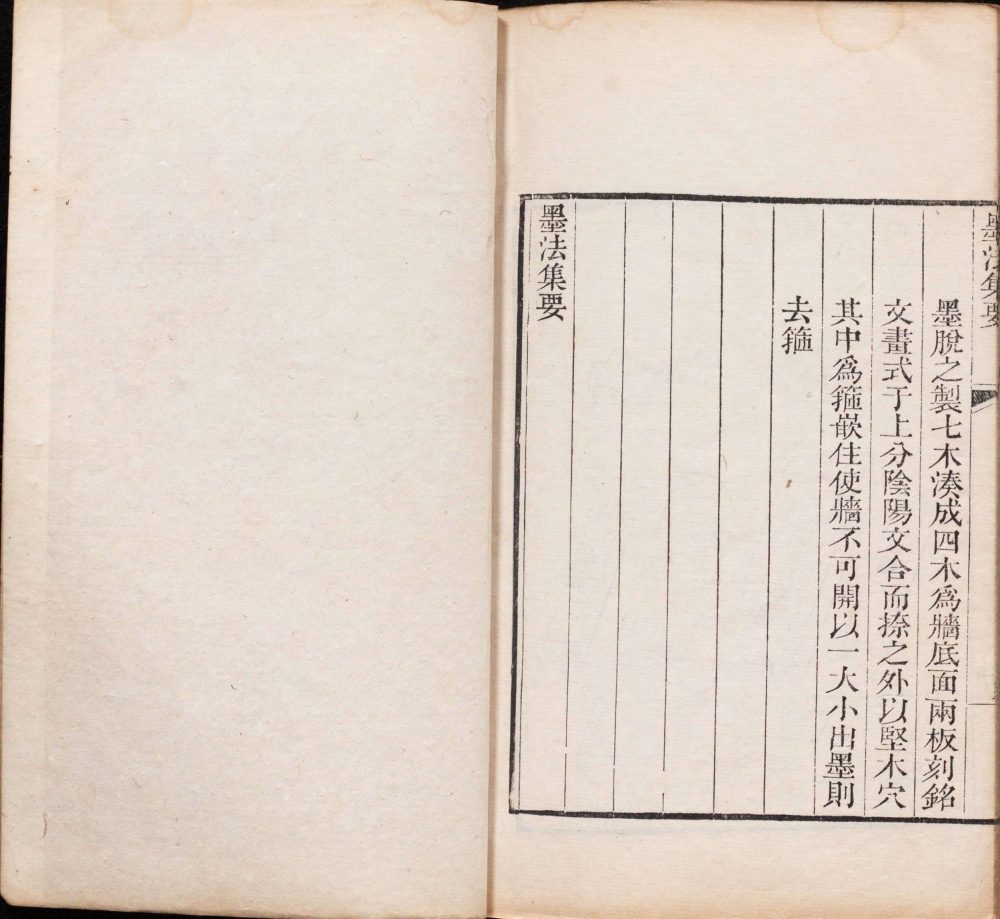 墨法集要
墨脫之製七木湊成四木爲牆底面兩板刻銘
文畫式于上分陰陽文合而捺之外以堅木穴
其中爲箍嵌住使牆不可開以一大小出墨則
去箍
墨法集要